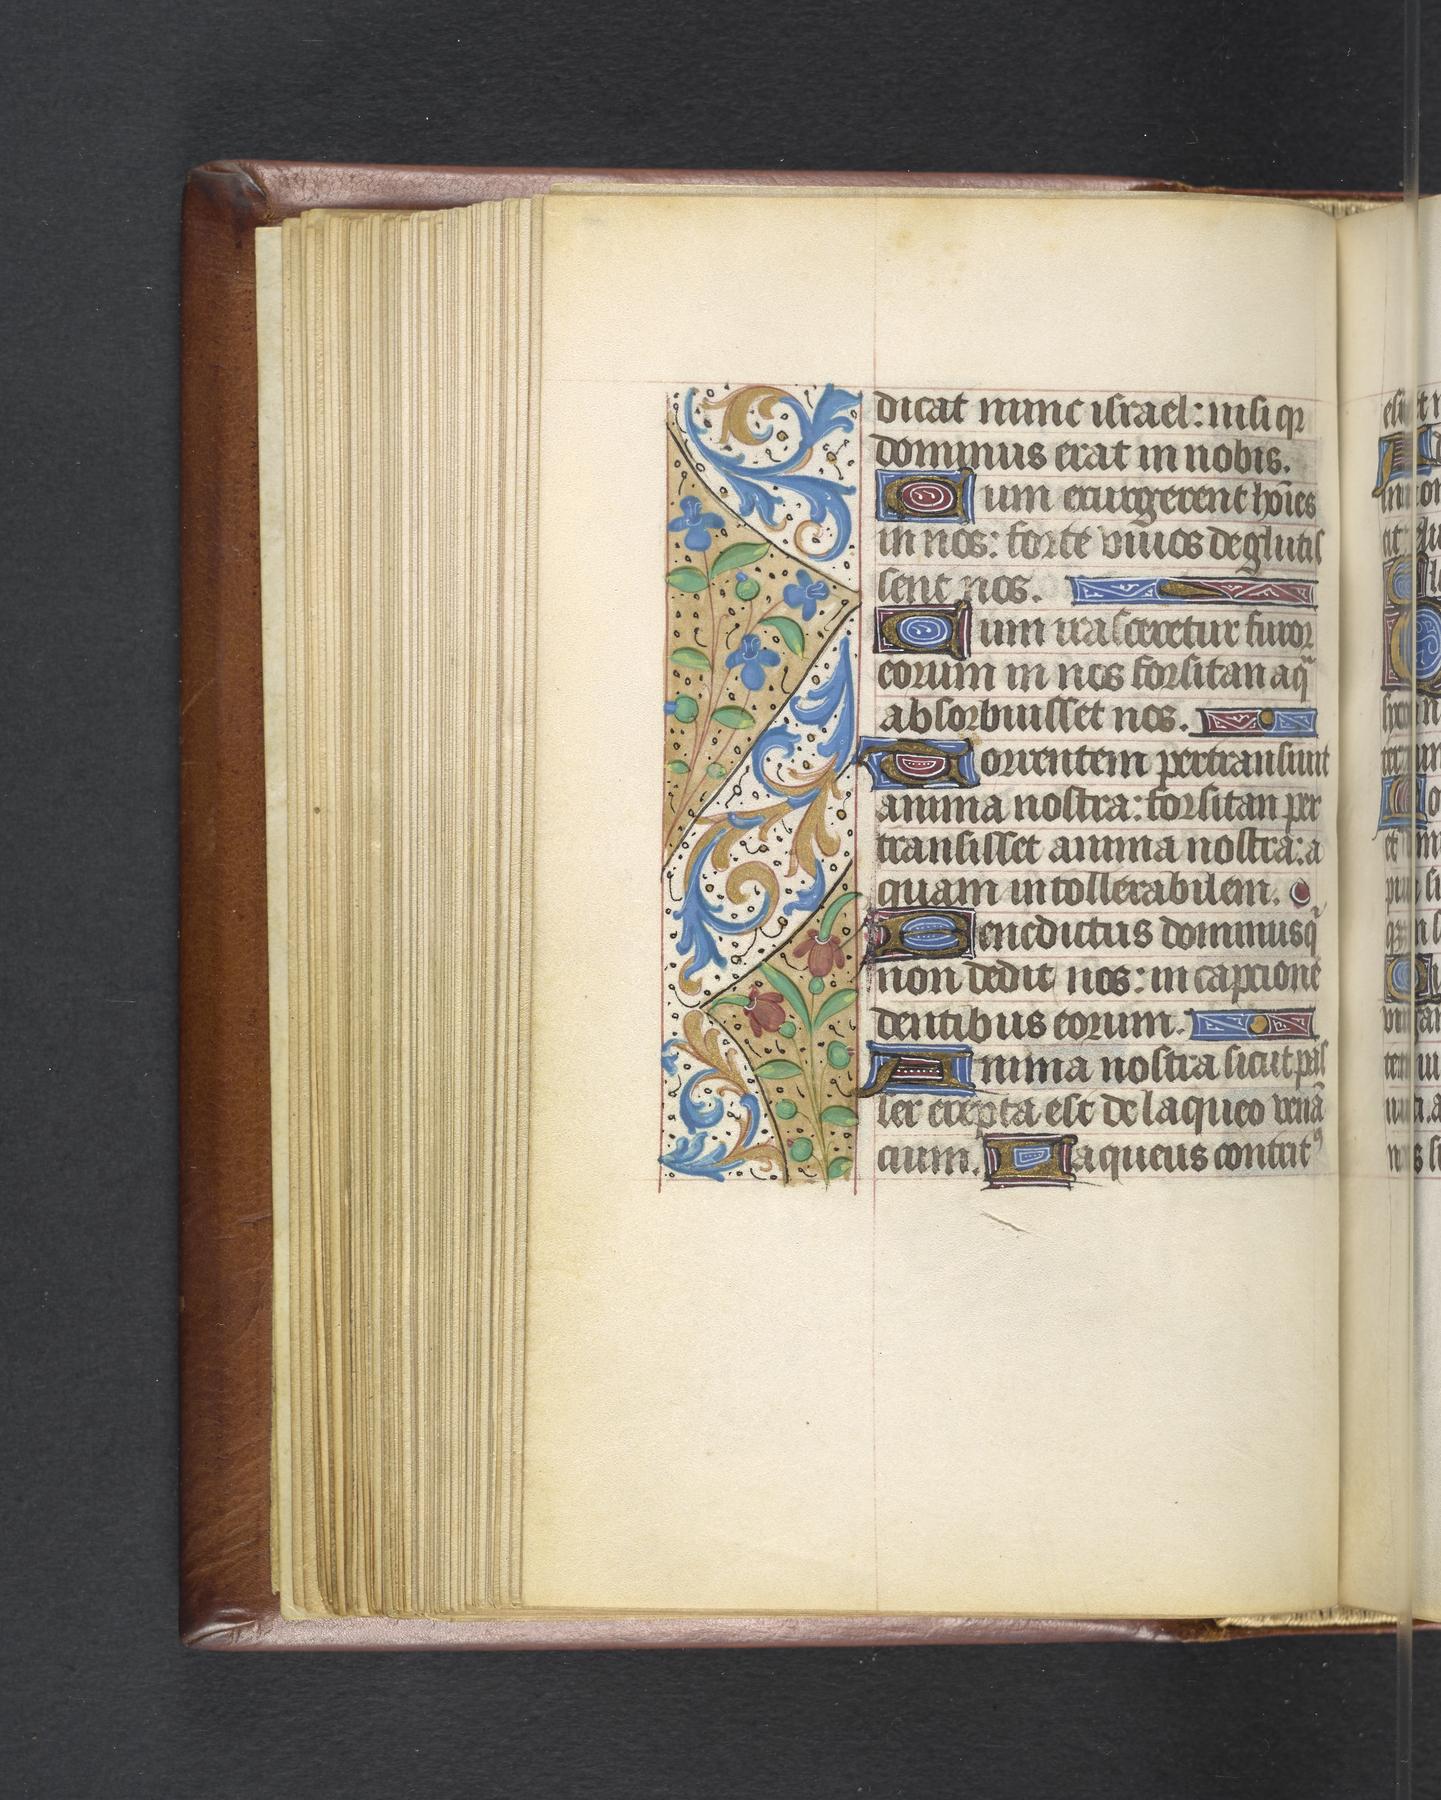 dicat nunc israel: nisi qꝛ
dominus erat in nobis.
Cum exurgerent hoīes
in nos: forte viuos deglutis
sent nos.
Cum irasceretur furor
eorum in nos forsitan aqᷓ
absorbuisset nos.
Torrentem pertransiuit
anima nostra: forsitan per
transisset anima nostra: a
quam intollerabilem.
Benedictus dominus q̄
non dedit nos: in capcione
dentibus eorum.
Anima nostra sicut pas
ser erepta est de laqueo venā
cium. Laqueus contritꝰ